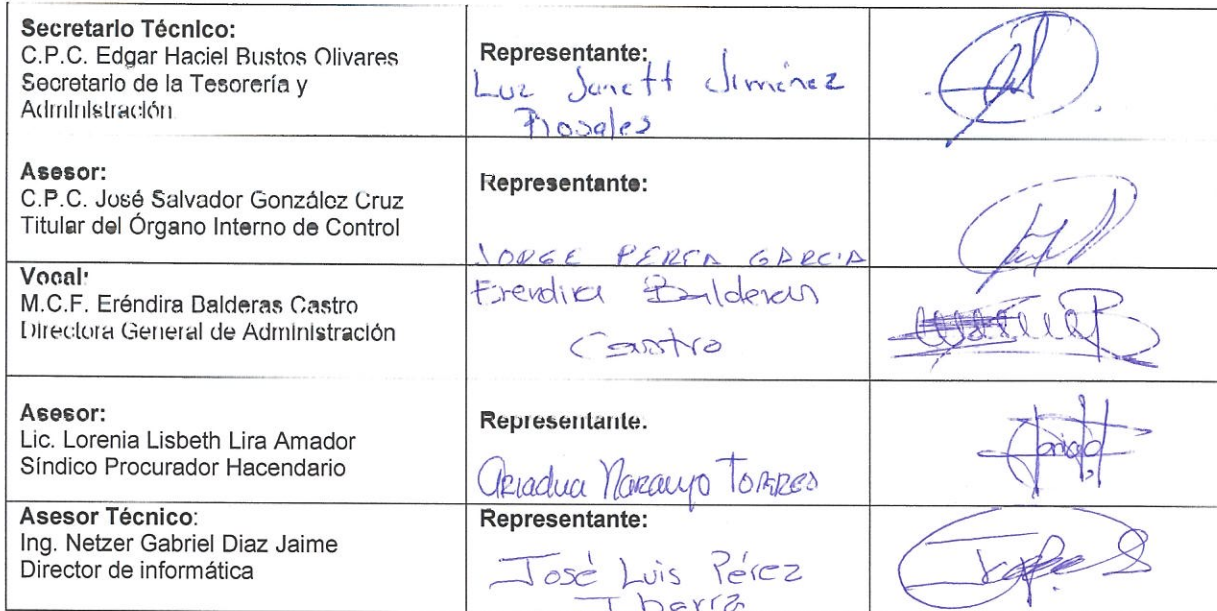 Secretario Técnico:
C.P.C. Edgar Haciel Bustos Olivares
Secretario de la Tesorería y
Administración
Representante:
Luz Janett Jiménez
Rosales
Asesor:
C.P.C. José Salvador González Cruz
Titular del Órgano Interno de Control
Representante:
JORGE GARCIA
Vocal:
M.C.F. Eréndira Balderas Castro
Directora General de Administración
Erendira Balderas
Castro
Asesor:
Lic. Lorenia Lisbeth Lira Amador
Síndico Procurador Hacendario
Representante.
Ariadna Naranjo Torres
Asesor Técnico:
Ing. Netzer Gabriel Diaz Jaime
Director de informática
Representante:
José Luis Pérez
Ibarra